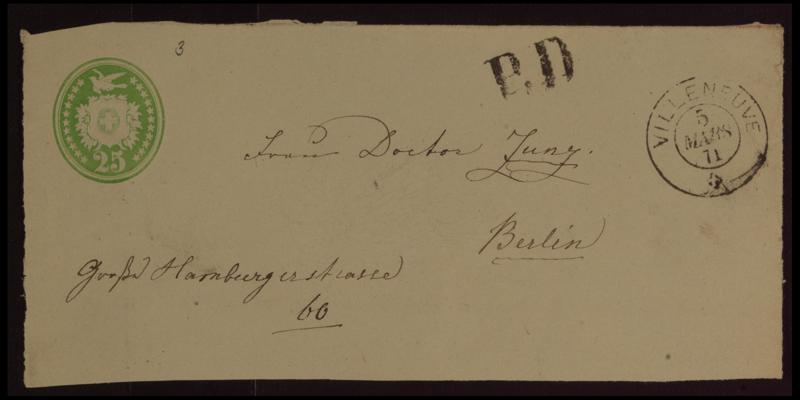 3
25
P.D
VILLENEUVE
5
MARS
71
Frau Doctor Zunz.
Berlin
Große Hamburgerstrasse
60